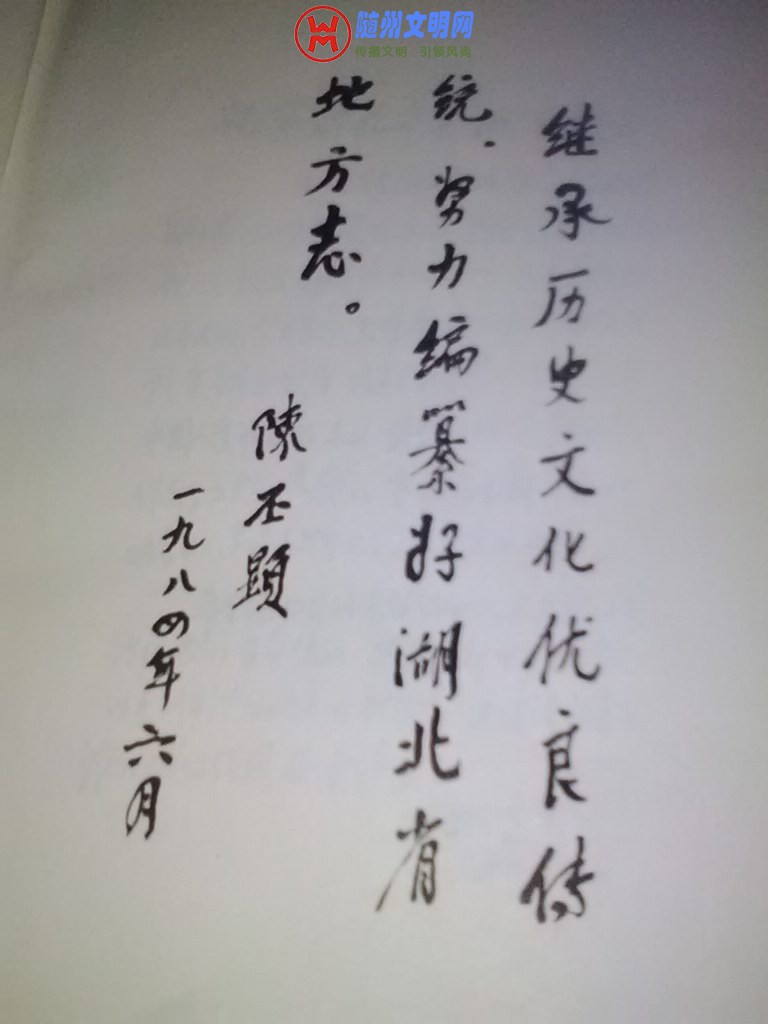 随州文明网
传播文明 引领风尚
继承历史文化优良传
统、努力编纂好湖北省
地方志。
陳丕顯
一九八四年六月